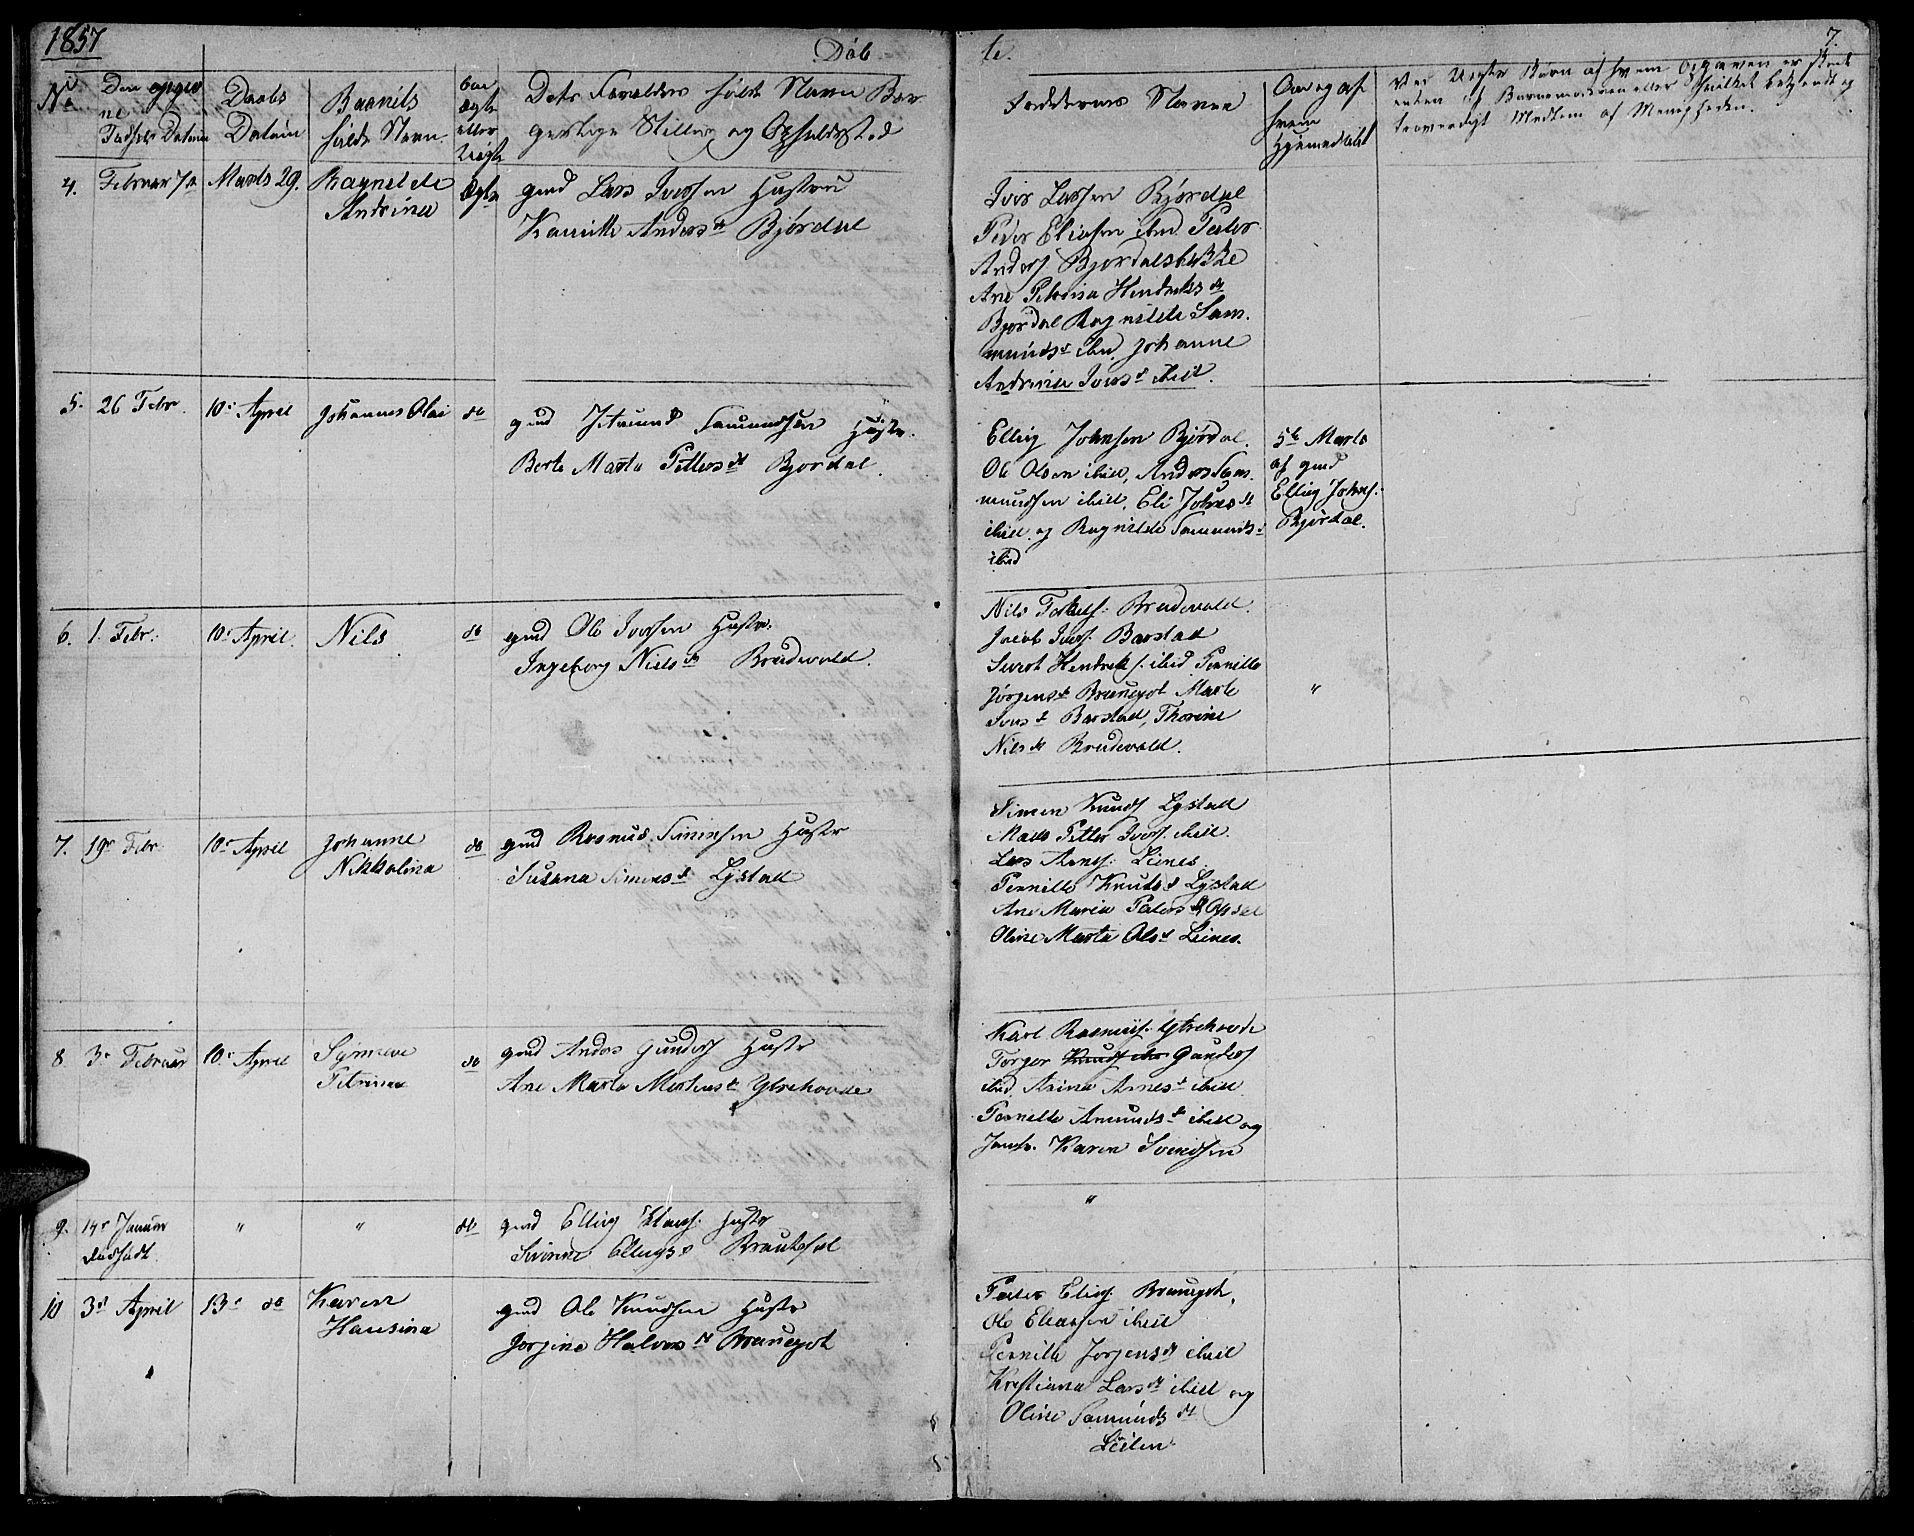 1857
Døb
te.
7.
No
Den opgivne
Fødsels Datum
Daabs
Datum
Barnets
fulde Navn
Om
Ægte
eller
Uægte
Dets Forældres fulde Navn Bor-
gerlige Stilling og Opholdssted
Faddernes Navne
Om og af
hvem
Hjemmedøbt
Ved Uægte Børn af hvem Opgaven er skeet
enten af Barnemoderen eller hvilket bekjendt og
troværdigt Medlem af Menigheden.
4. Februar 7de Marts 29. Ragnilde
Andrina
Ægte
gmd Lars Iversen Hustru
Pernille Anders dt Bjørdal
Iver Larsen Bjørdal
Peder Eliasen ibd. Peter
Anders Bjordalsbakke
Ane Petrina Hendriks dt
Bjordal Ragnilde Sam-
munds dt ibd. Johanne
Andrina Ivers dt ibid.
5. 26 Febr. 10de April Johannes Olai do
gmd Samundsen Hustr.
Berte Marta Petters dt Bjordal.
Elling Johnsen Bjørdal.
Ole Olsen ibid, Anders Sam-
mundsen ibid, Eli Johns dt
ibid. og Ragnilde Samunds dt
ibid
5te Marts
af gmd
Elling Johns:
Bjørdal.
6. 1. Febr: 10de April. Nils do
gmd Ole Iversen Hustr.
Ingeborg Niels dt Brudevold.
Nils Brudevold.
Jacob Ivers. Barstad
Sivert Hendriks. ibid Pernille
Jørgens dt Braugot Marte
Ivers dt Barstad, Thorine
Nils dt Brudevold.
"
7. 19de Febr. 10de April Johanne
Nikkoline
do
gmd Rasmus Simensen Hustr
Susana Simens dt Lystad
Simen Knuds Lystad
Mads Petter Ivers. ibid.
Lars Arnes: Leines.
Pernille Knuts dt Lystad
Ane Maria Peters dt Opsal
Oline Marta Ols dt Leines.
8 3de Februar 10de April Synneve
Petrina
do
gmd Anders Gunders Hustr
Ane Marta Mortens dt Ytrehovde
Karl Rasmus: Ytrehovde
Torger Knuds ibd Gunders
ibid. Arina Arnes dt ibid
Pernille Amunds dt ibid og
Jomfr. Karen Svendsen
9. 14de Januar
dødfødt.
" " do
gmd Elling Klaus: Hustr
Sivrine Ellings dt Brautesæl
"
10 3de April 13de do Karen
Hansina
gmd Ole Knudsen Hustr
Jorgine Halvors dt Braugot
Peter Elias: Braugot,
Ole Eliassen ibid
Pernille Jorgens dt ibid
Kristiana Lars dt ibid og
Oline Samunds dt
Leiten